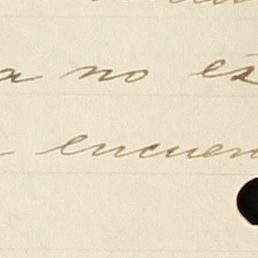 a no es
encuen